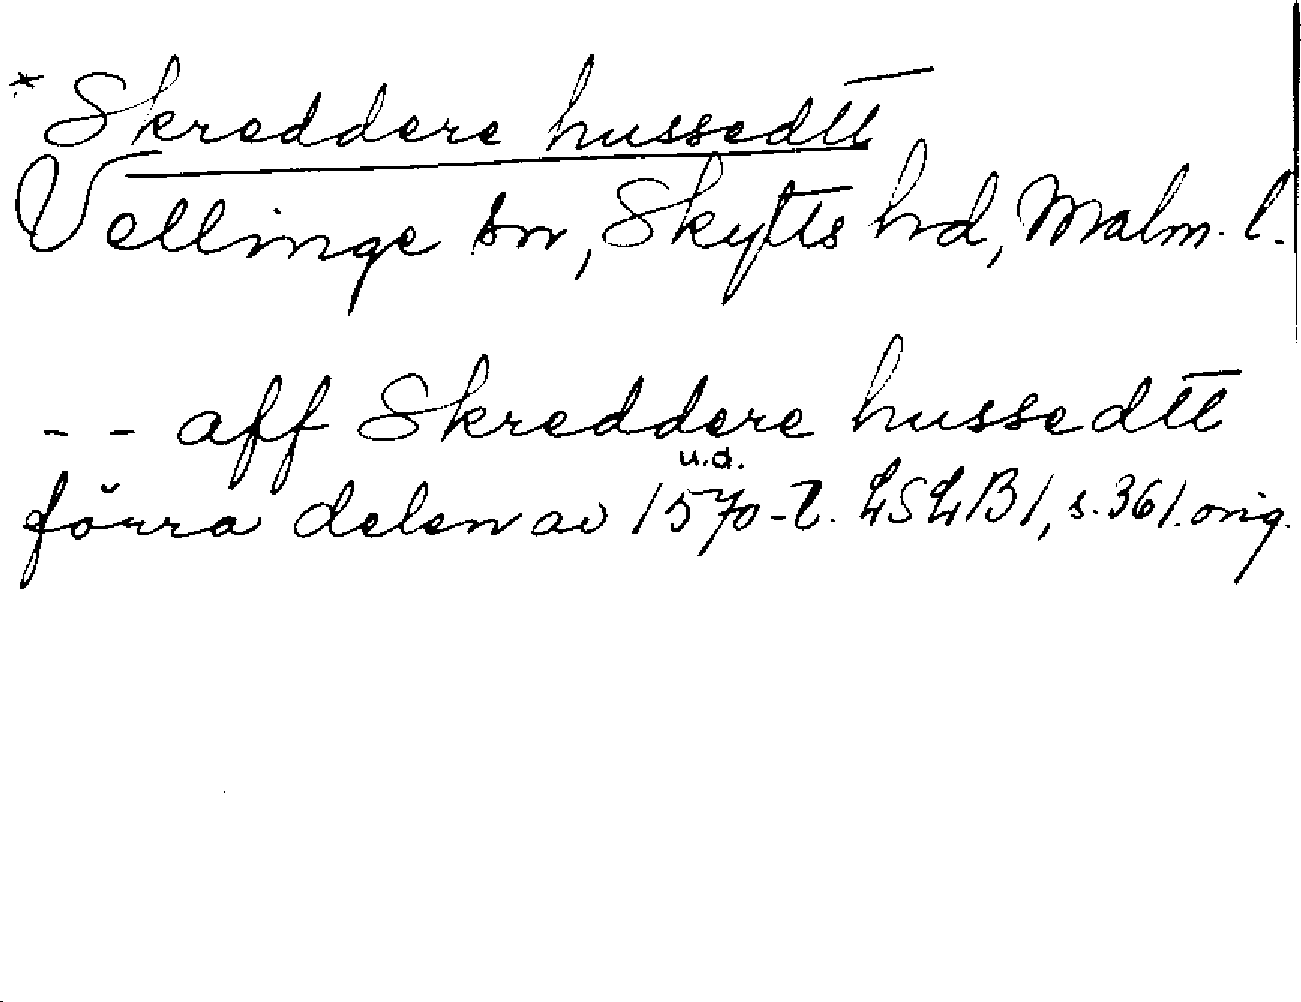 * Skreddere hussedtt
Vellinge sn, Skytts hd, Malm. l.
-- aff Skreddere hussedtt
u.d.
förra delen av 1570-t. LSLB1, s. 361. orig.